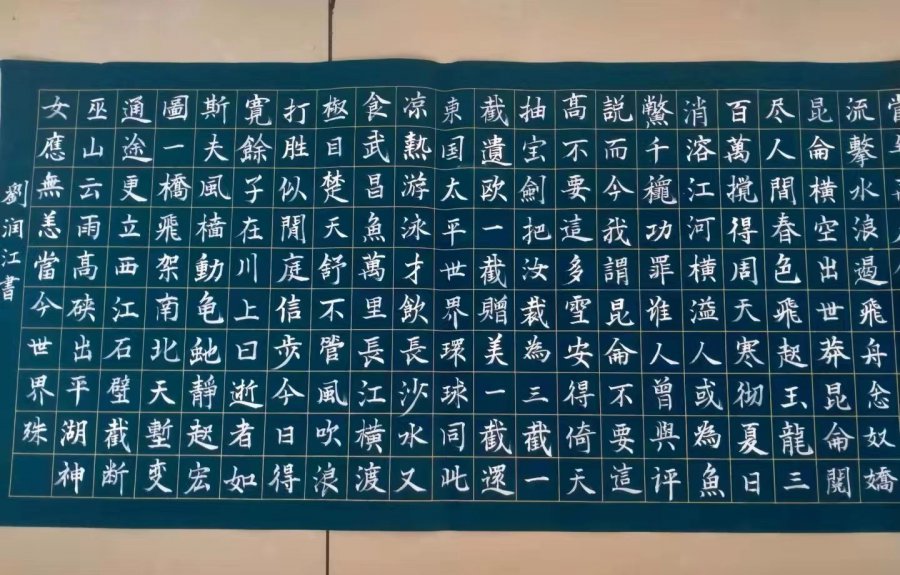 流擊水浪遏飛舟念奴嬌
昆侖橫空出世莽昆侖閱
尽人間春色飛起玉龍三
百萬攪得周天寒彻夏日
消溶江河橫溢人或為魚
鱉千穐功罪谁人曾與評
説而今我謂昆侖不要這
高不要這多雪安得倚天
抽宝劍把汝裁為三截一
截遺欧一截贈美一截還
東国太平世界環球同此
凉熱游泳才飲長沙水又
食武昌魚萬里長江橫渡
極目楚天舒不管風吹浪
打胜似閒庭信步今日得
寬餘子在川上曰逝者如
斯夫風檣動龟虵靜起宏
圖一橋飛架南北天塹变
通途更立西江石壁截断
巫山云雨高硖出平湖神
女應無恙當今世界殊
劉润江書